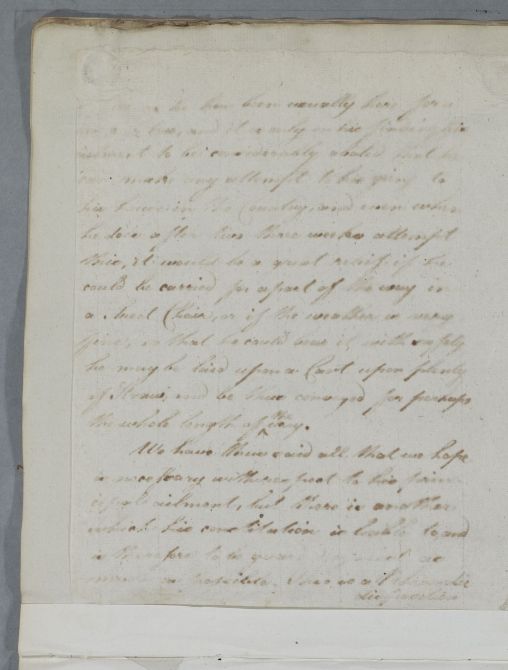 as he has been usually here for a
and it is only on his finding his
ailment to be considerably abated that he
can make any attempt to be going to
his house in the Country, and even when
he does after two three weeks attempt
this, it would be a great relief if he
could be carried for a part of the way in
a Sued Chair, or if the weather is very
fine, so that he could use it with safety
he may be laid upon a Cart upon plenty
of Straw, and be thus conveyed for perhaps
the whole length of the way.
We have thus said all that we hope
is necessary with respect to his prin
cipal ailment, but there is another
which his constitution is liable to and
is therefore to be guarded against as
much as possible. This is a
disposition